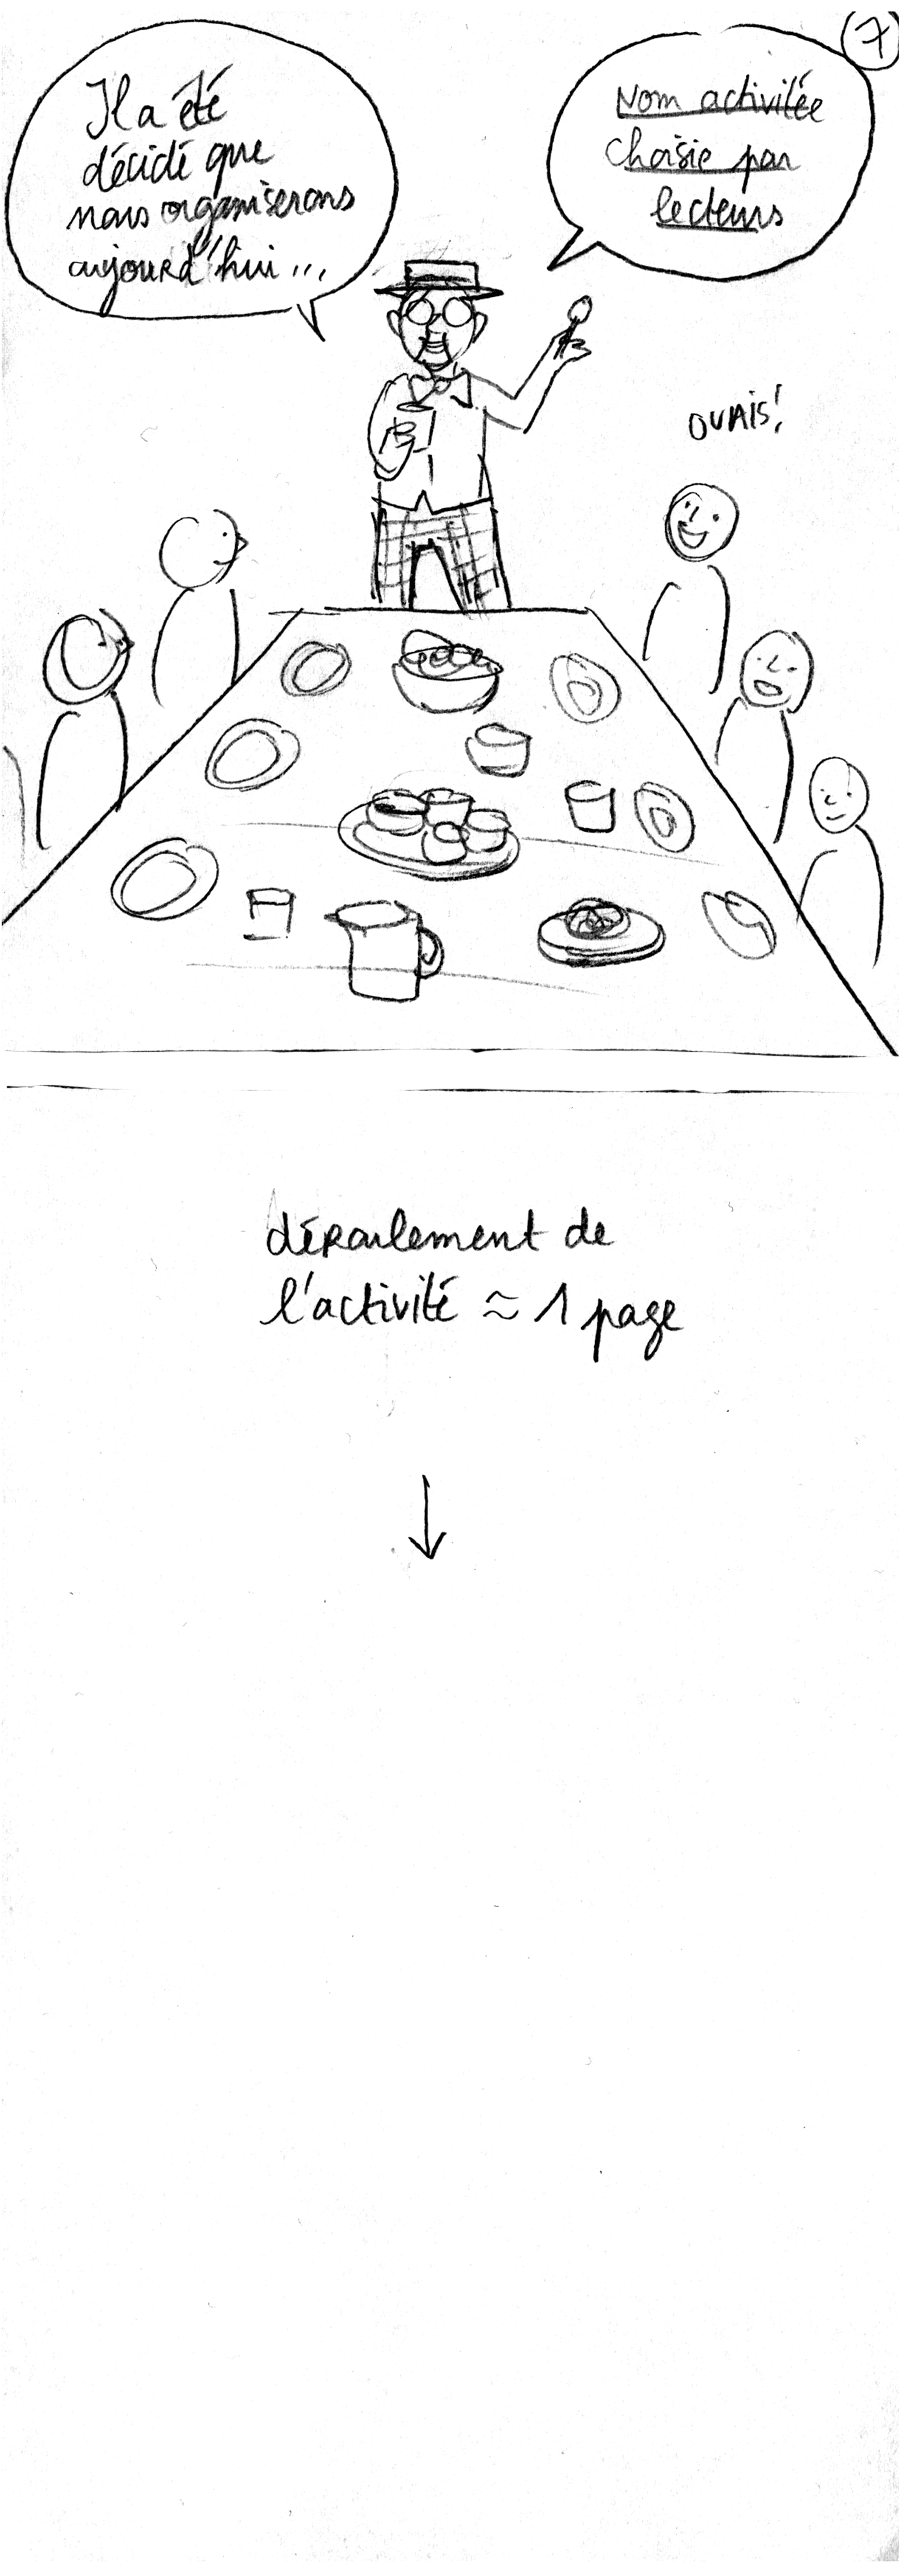 7
Il a été
décidé que
nous organiserons
aujourd'hui...
Nom activitée
choisie par
lecteurs
OUAIS!
déroulement de
l'activité ≈ 1 page